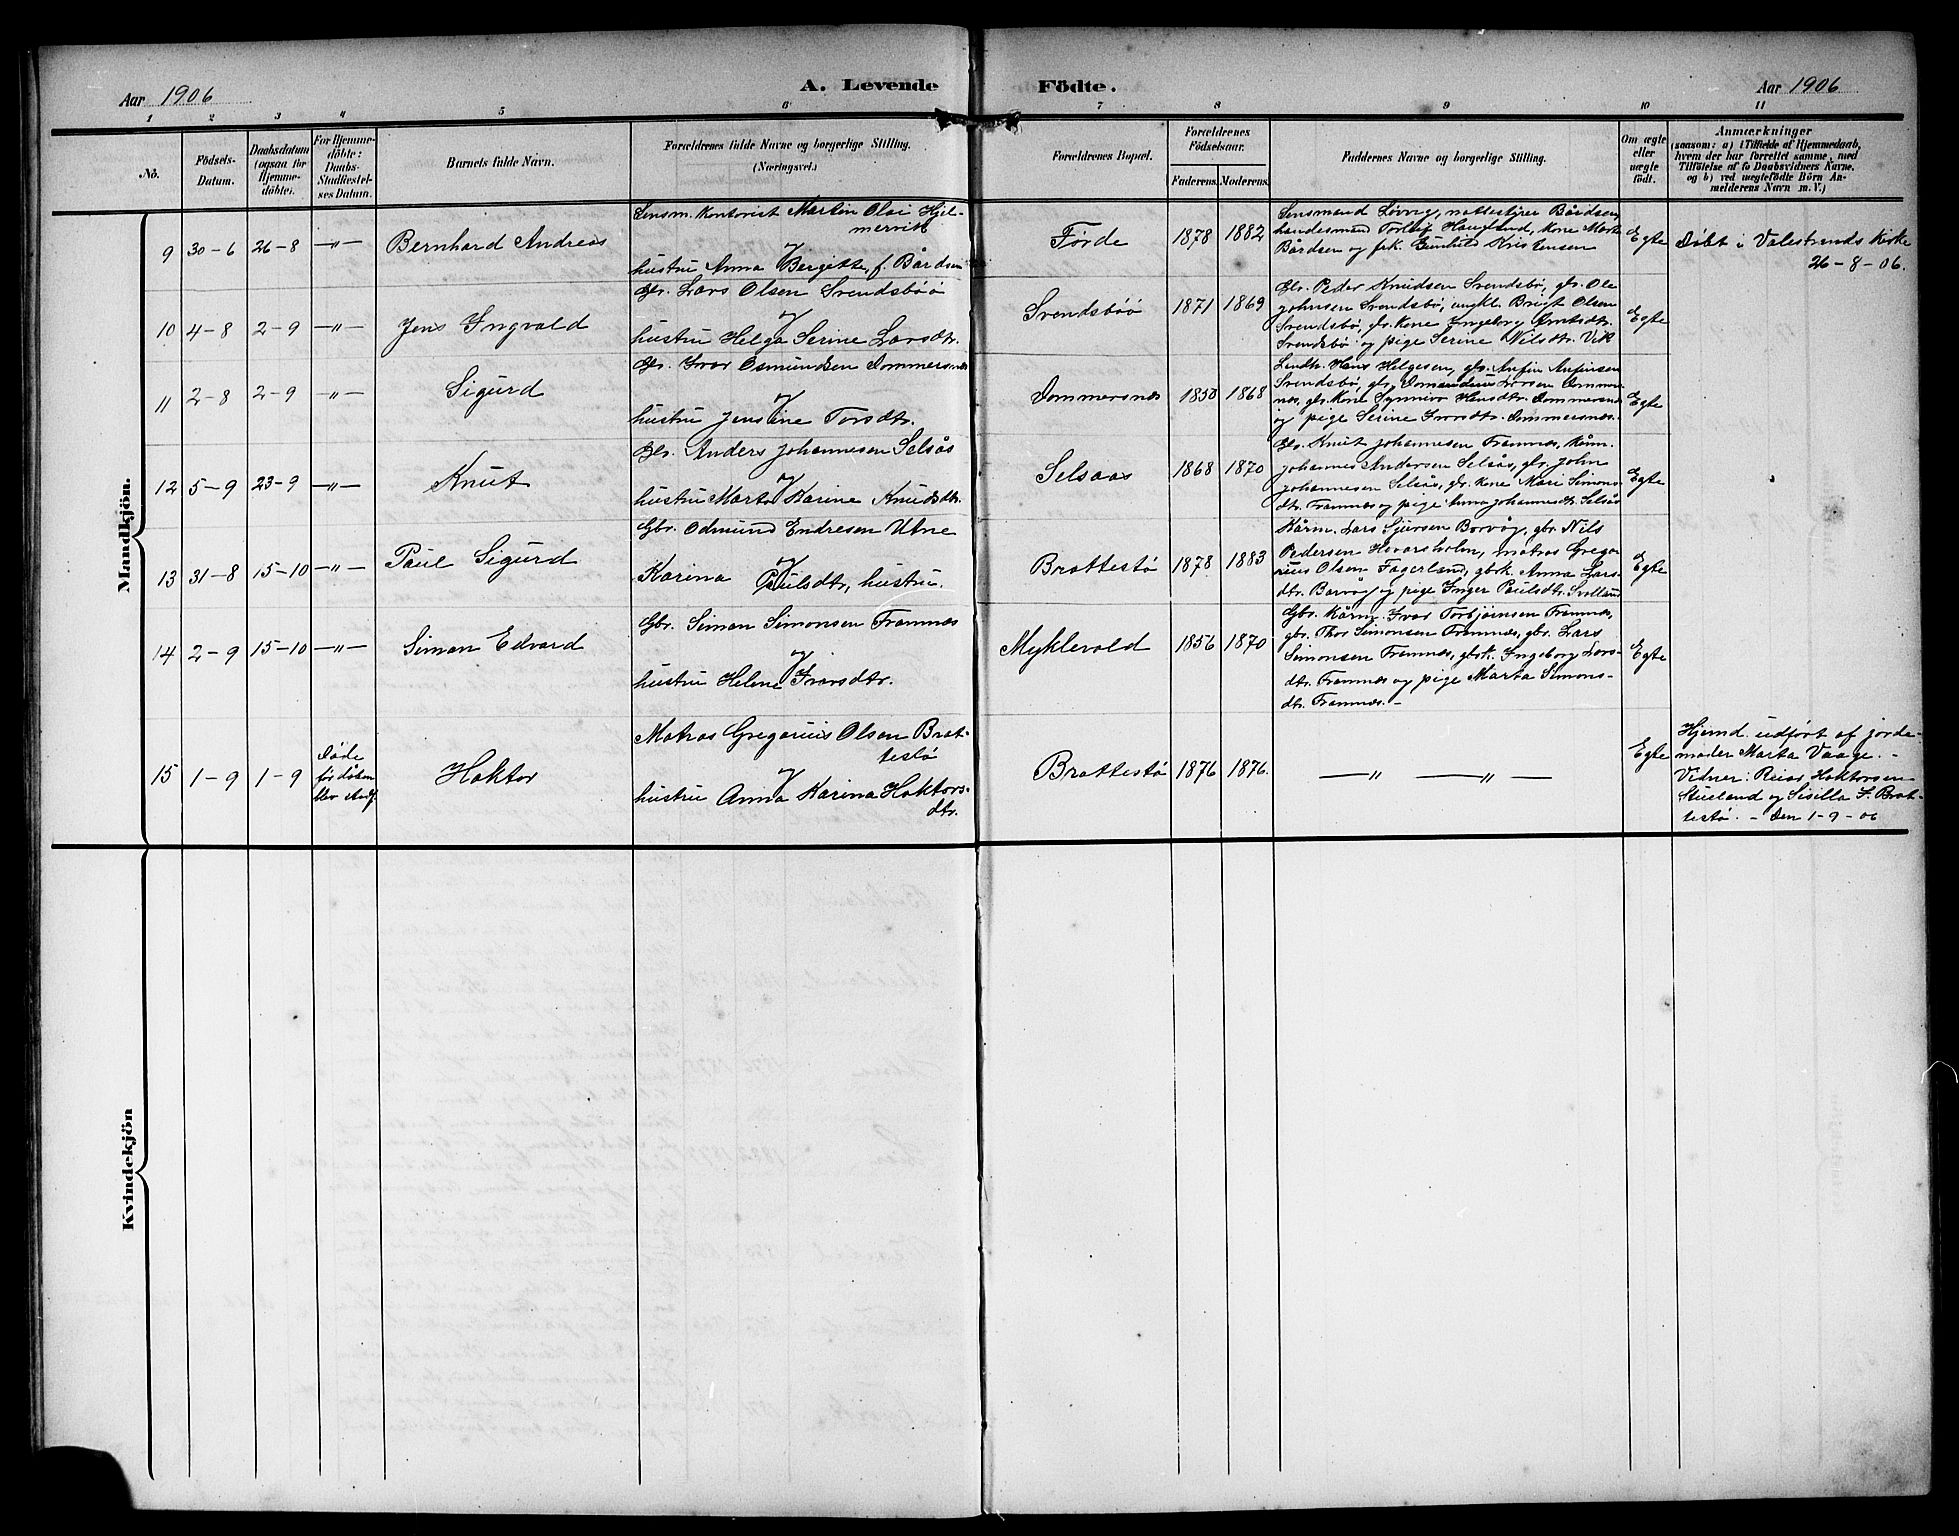 Aar 1906
A. Levende
Födte.
Aar 1906
1 2 3 4 5 6 7 8 9 10 11
No.
Födsels-
Datum.
Daabsdatum
(ogsaa for
Hjemme-
döbte).
For Hjemme-
döbte:
Daabs-
Stadfæstel-
ses Datum.
Barnets fulde Navn.
Forældrenes fulde Navne og borgerlige Stilling.
(Næringsvei.)
Forældrenes Bopæl.
Forældrenes
Födselsaar.
Faderens. Moderens.
Faddernes Navne og borgerlige Stilling.
Om ægte
eller
uægte
født.
Anmærkninger
(saasom: a) i Tilfælde af Hjemmedaab,
hvem der har forrettet samme, med
Tilføielse af to Daabsvidners Navne,
og b) ved uægtefødte Börn An-
melderens Navn m. V.)
Mandkjön.
9 30-6 26-8 —"—
Bernhard Andreas
Lensm. Kontorist Martin Olai Hjel-
mervik
og
hustru Anna Bergitte, f. Bårdsen
Førde
1878 1882
Lensmand Løvig, mattestyrer Bårdsen,
handelsmand Torleif Haugland, kone Marta
Bårdsen og frk. Gunhild Kristensen
Egte
Døbt i Valestrands Kirke
26-8-06.
10 4-8 2-9 —"—
Jens Ingvald
Gbr. Lars Olsen Svendsbøø
og
hustru Helga Serine Larsdtr.
Svendsbøø
1871 1869
Gbr. Peder Knudsen Svendsbø, gbr. Ole
Johnsen Svendsbø, ungkl. Brigt Olsen
Svendsbø, gbr. kone Ingeborg
Svendsbø og pige Serine Nilsdtr. Vik
Egte
11 2-8 2-9 —"—
Sigurd
Gbr. Ivar Osmundsen Dommersnæs
og
hustru Jensine Torsdtr.
Dommersnæs
1850 1868
Landh. Hans Helgesen, gbr. Anfin Anfinsen
Svendsbø, gbr. Larsen Dommers-
næs, gbr. kone Synniva Hansdtr. Dommersnæs
og pige Serine Ivarsdtr. Dommersnæs.
Egte
12 5-9 23-9 —"—
Knut
Gbr. Anders Johannesen Selsås
og
hustru Marta Karine Knudsdtr.
Selsaas
1868 1870
Gbr. Knut Johannesen Framnæs, kårm.
Johannes Andersen Selsås, gbr. John
Johannesen Selsås, gbr. kone Mari Simons-
dtr. Framnæs og pige Anna Johannesdtr. Selsås
Egte
13 31-8 15-10 —"—
Paul Sigurd
Gbr. Odmund Endresen Utne
og
Karina Paulsdtr, hustru.
Brattestø
1878 1883
Kårm. Lars Sjursen Borvåg, gbr. Nils
Pedersen Hovarsholm, matros Grego-
rius Olsen Fagerland, gbrk. Anna Lars-
dtr. Borvåg og pige Inger Paulsdtr.
Egte
14 2-9 15-10 —"—
Simon Edvard
Gbr. Simon Simonsen Framnæs
og
hustru Helene Ivarsdtr.
Myklevold
1856 1870
Gbr. Kårm. Ivar Torbjørnsen Framnæs,
gbr. Thor Simonsen Framnæs, gbr. Lars
Simonsen Framnæs, gbrk. Ingeborg Lars-
dtr. Framnæs og pige Marta Simons-
dtr. Framnæs.—
Egte
15 1-9 1-9
Døde
før dåben
blev stadf.
Haktor
Matros Gregorius Olsen Brat-
testø
og
hustru Anna Karina Haktors-
dtr.
Brattestø
1876 1876.
—"— —"—
Egte
Hjemd. udført af jorde-
moder Marta Vaage.—
Vidner: Reiar Haktorsen
Stusland og Sisilla F. Brat-
testø.— Den 1-9-06
Kvindekjön